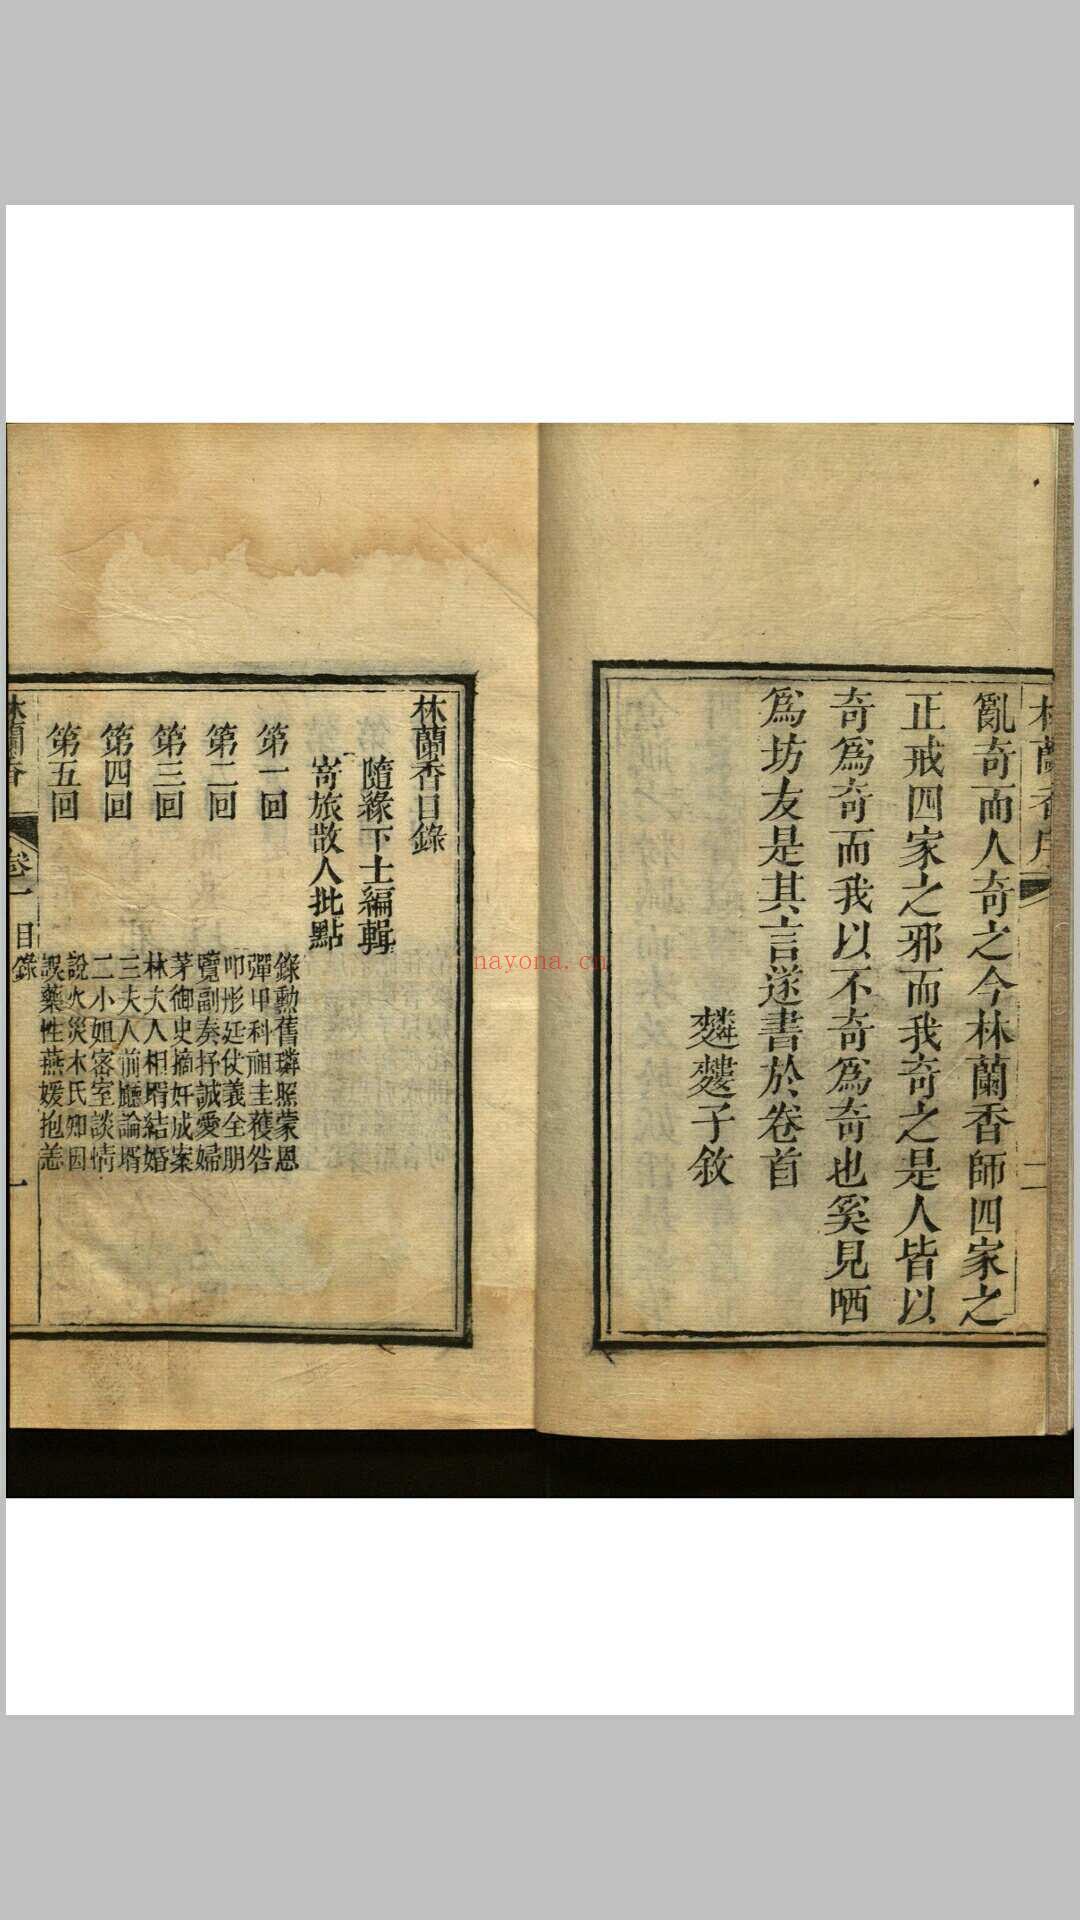 林蘭香序
二
亂奇而人奇之今林蘭香師四家之
正戒四家之邪而我奇之是人皆以
奇爲奇而我以不奇爲奇也奚見哂
爲坊友是其言遂書於卷首
子敘
林蘭香目錄
隨緣下士編輯
寄旅散人批點
第一回
錄勲舊璘照蒙恩
彈甲科祖圭獲咎
第二回
叩彤廷仗義全朋
覽副奏抒誠愛婦
第三回
茅御史摘奸成案
林大人相壻結婚
第四回
三夫人前廳論壻
二小姐密室談情
第五回
說火災木氏知因
誤藥性燕媛抱恙
林蘭香
卷一
目錄
一
nayona.cn